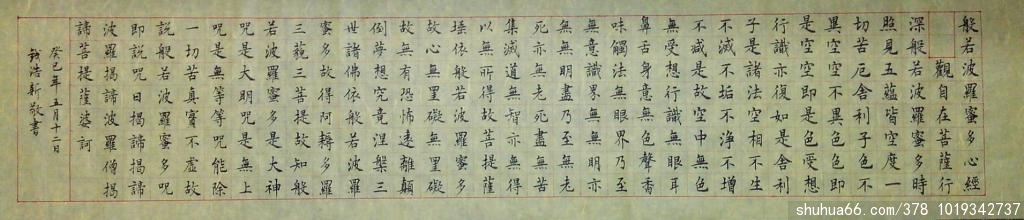 般若波羅蜜多心經
觀自在菩薩行
深般若波羅蜜多時
照見五蘊皆空度一
切苦厄舍利子色不
異空空不異色色即
是空空即是色受想
行識亦復如是舍利
子是諸法空相不生
不滅不垢不淨不增
不減是故空中無色
無受想行識無眼耳
鼻舌身意無色聲香
味觸法無眼界乃至
無意識界無無明亦
無無明盡乃至無老
死亦無老死盡無苦
集滅道無智亦無得
以無所得故菩提薩
埵依般若波羅蜜多
故心無罣礙無罣礙
故無有恐怖遠離顛
倒夢想究竟涅槃三
世諸佛依般若波羅
蜜多故得阿耨多羅
三藐三菩提故知般
若波羅蜜多是大神
呪是大明呪是無上
呪是無等等呪能除
一切苦真實不虛故
說般若波羅蜜多呪
即說呪曰揭諦揭諦
波羅揭諦波羅僧揭
諦菩提薩婆訶
癸巳年五月十二日
浩新敬書
shuhua66.com/378 1019342737